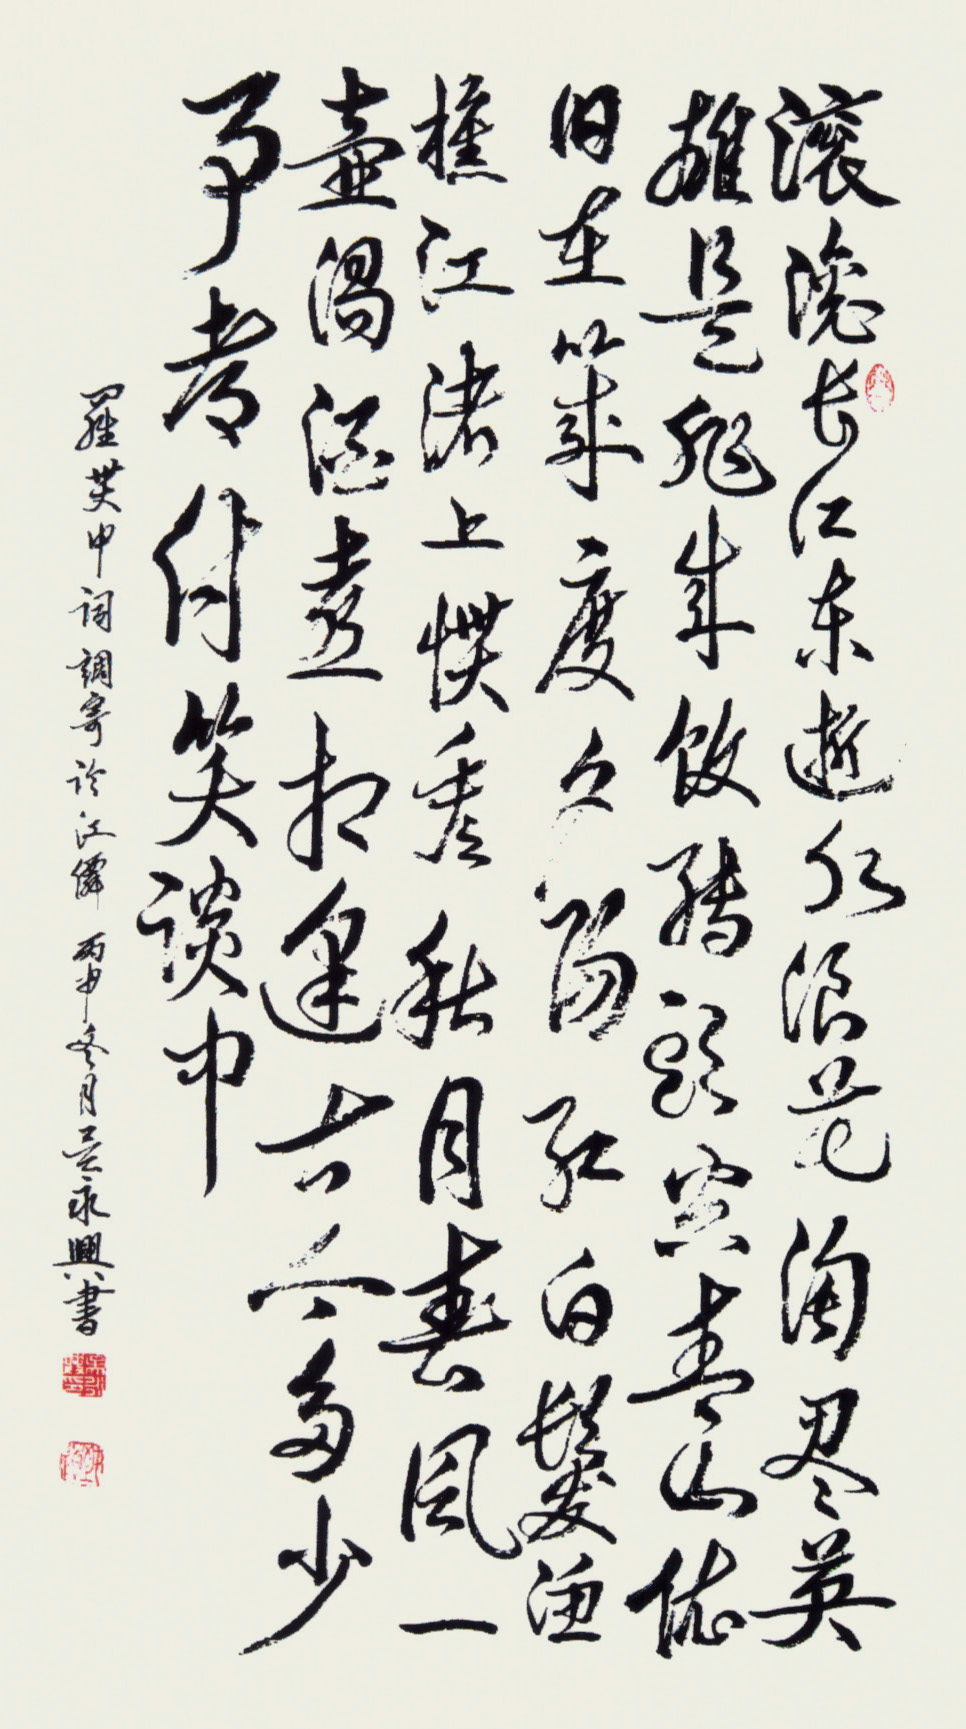 滚滚长江东逝水浪花淘尽英
雄是非成败转头空青山依
旧在几度夕阳红白髮渔
樵江渚上惯看秋月春风一
壶浊酒喜相逢古今多少
事都付笑谈中
羅贯中词調寄临江僊 丙申冬月吴永興書